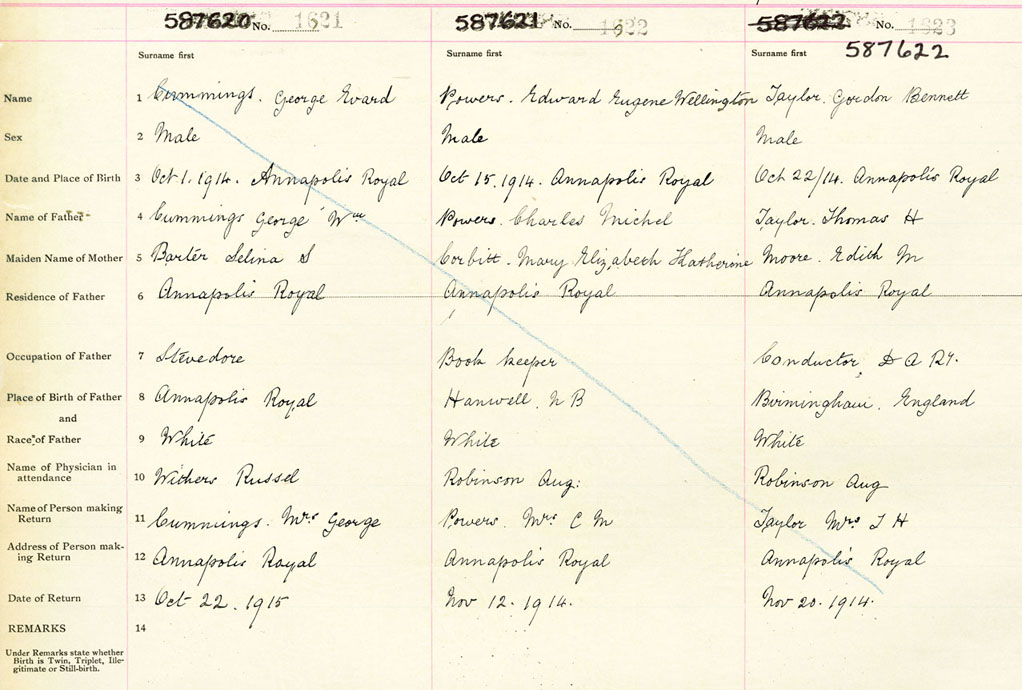 587620 No. 1621 587621 No. 1622 587622 No. 1623
Surname first Surname first Surname first 587622
Name 1 Cummings. George Evard Powers. Edward Eugene Wellington Taylor. Gordon Bennett
Sex 2 Male Male Male
Date and Place of Birth 3 Oct 1. 1914. Annapolis Royal Oct 15. 1914. Annapolis Royal Oct 22/14. Annapolis Royal
Name of Father 4 Cummings George Wm Powers. Charles Michel Taylor. Thomas H
Maiden Name of Mother 5 Barter Selina S Corbitt. Mary Elizabeth Katherine Moore. Edith M
Residence of Father 6 Annapolis Royal Annapolis Royal Annapolis Royal
Occupation of Father 7 Stevedore Book keeper Conductor, D A Ry.
Place of Birth of Father 8 Annapolis Royal Hanwell. N B Birmingham. England
and
Race of Father 9 White White White
Name of Physician in
attendance 10 Withers Russel Robinson Aug: Robinson Aug
Name of Person making
Return 11 Cummings. Mrs George Powers. Mrs C M Taylor Mrs T H
Address of Person mak-
ing Return 12 Annapolis Royal Annapolis Royal Annapolis Royal
Date of Return 13 Oct 22. 1915 Nov 12. 1914. Nov 20. 1914.
REMARKS 14
Under Remarks state whether
Birth is Twin, Triplet, Ille-
gitimate or Still-birth.